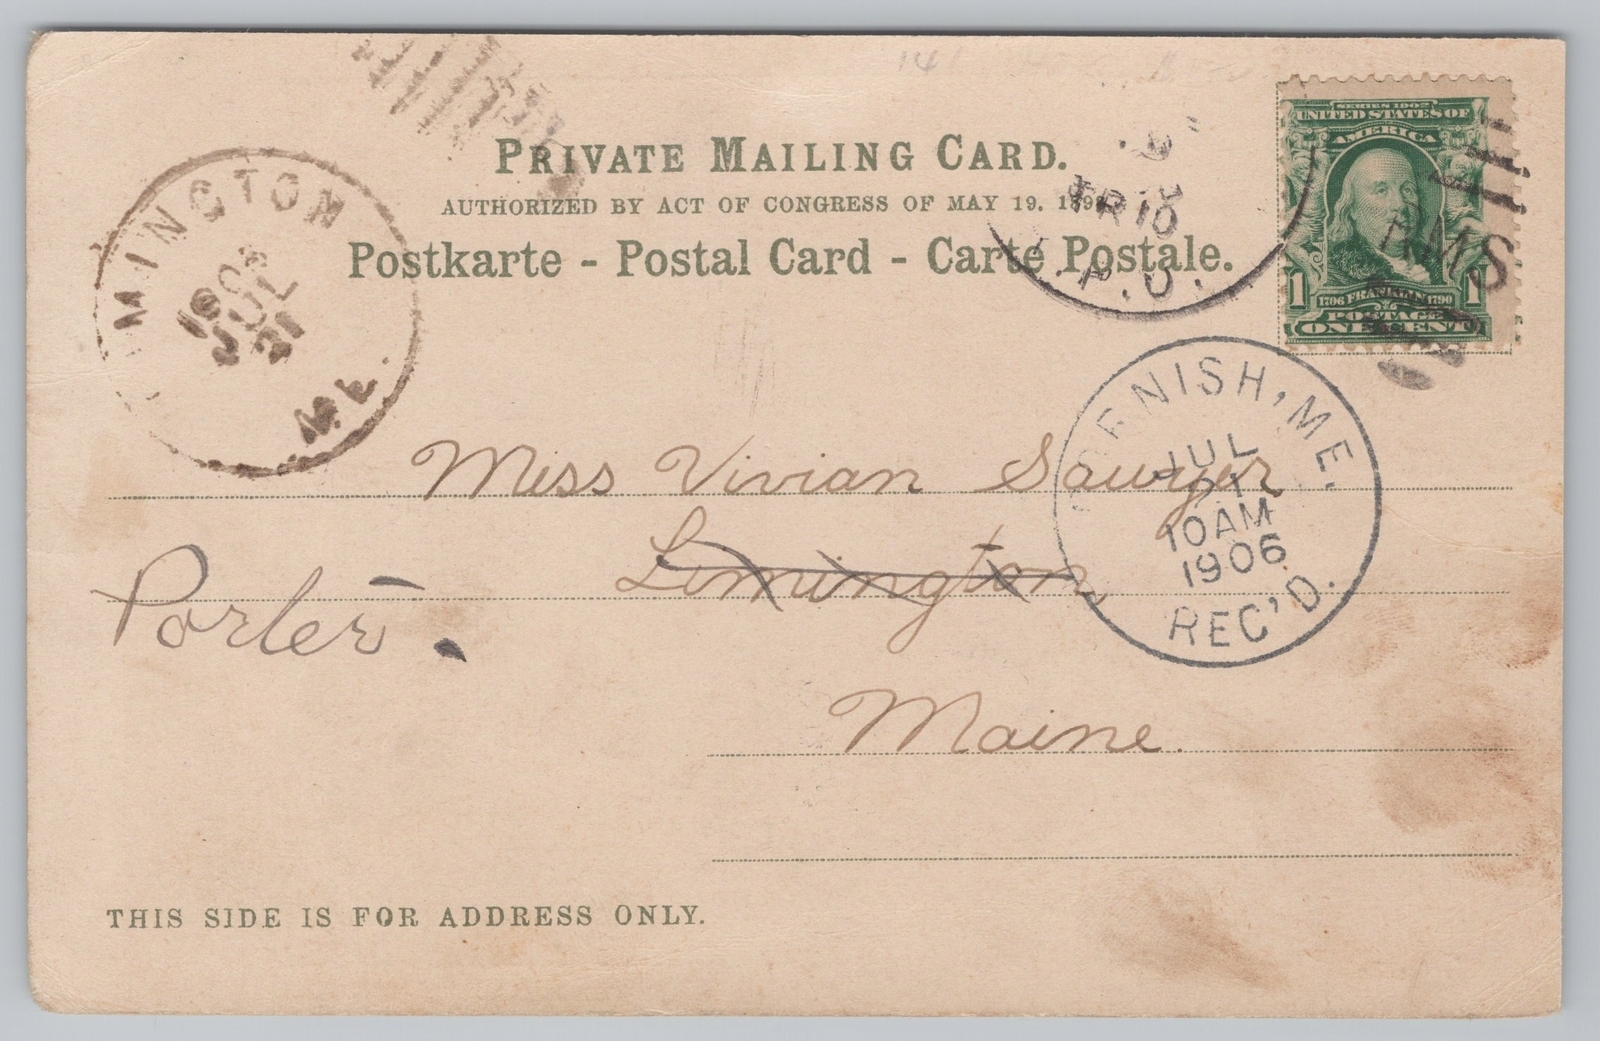 PRIVATE MAILING CARD.
AUTHORIZED BY ACT OF CONGRESS OF MAY 19. 1898
Postkarte - Postal Card - Carte Postale.
SERIES 1902
UNITED STATES OF
AMERICA
1 1706 FRANKLIN 1790 1
POSTAGE
ONE CENT
RMS
TR 10
P.O.
MINGTON
JUL
31
ME.
NISH, ME.
JUL
10 AM
1906
REC'D.
Miss Vivian Sawyer
Limington
Porter.
Maine.
THIS SIDE IS FOR ADDRESS ONLY.